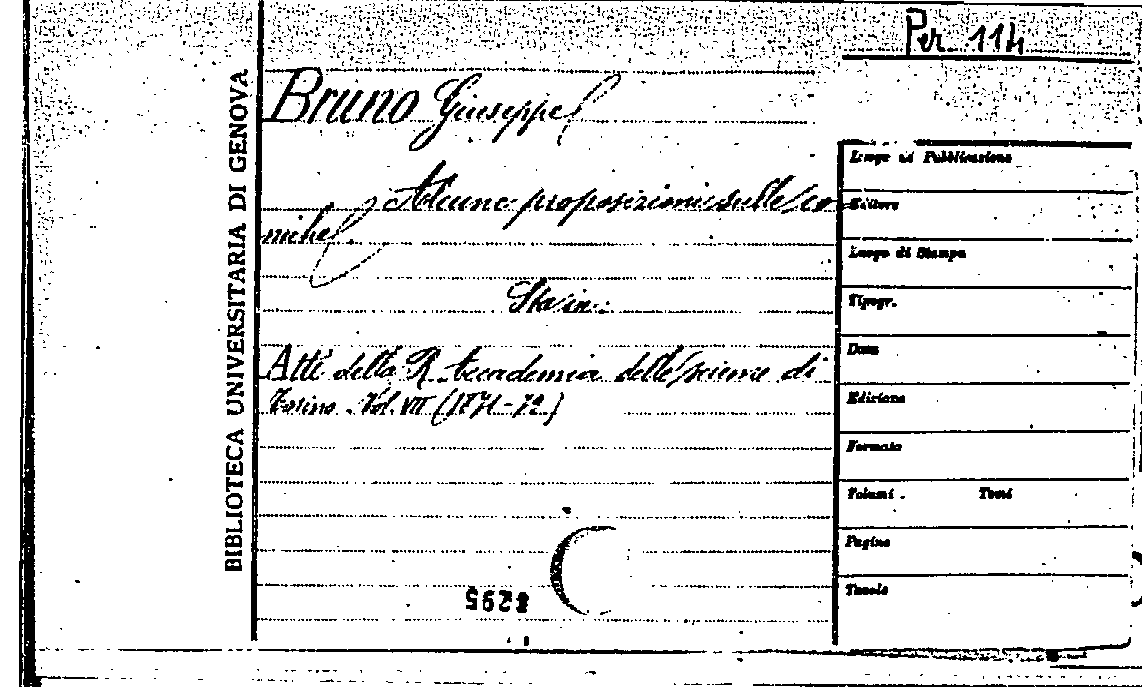 Per. 114
BIBLIOTECA UNIVERSITARIA DI GENOVA
Bruno Giuseppe
Alcune proposizioni sulle co-
niche
Sta in:
Atti della R. Accademia delle scienze di
Torino. Vol. VII (1871-72)
Luogo di Pubblicazione
Editore
Luogo di Stampa
Tipogr.
Data
Edizione
Formato
Volumi. Tomi
Pagine
Tavole